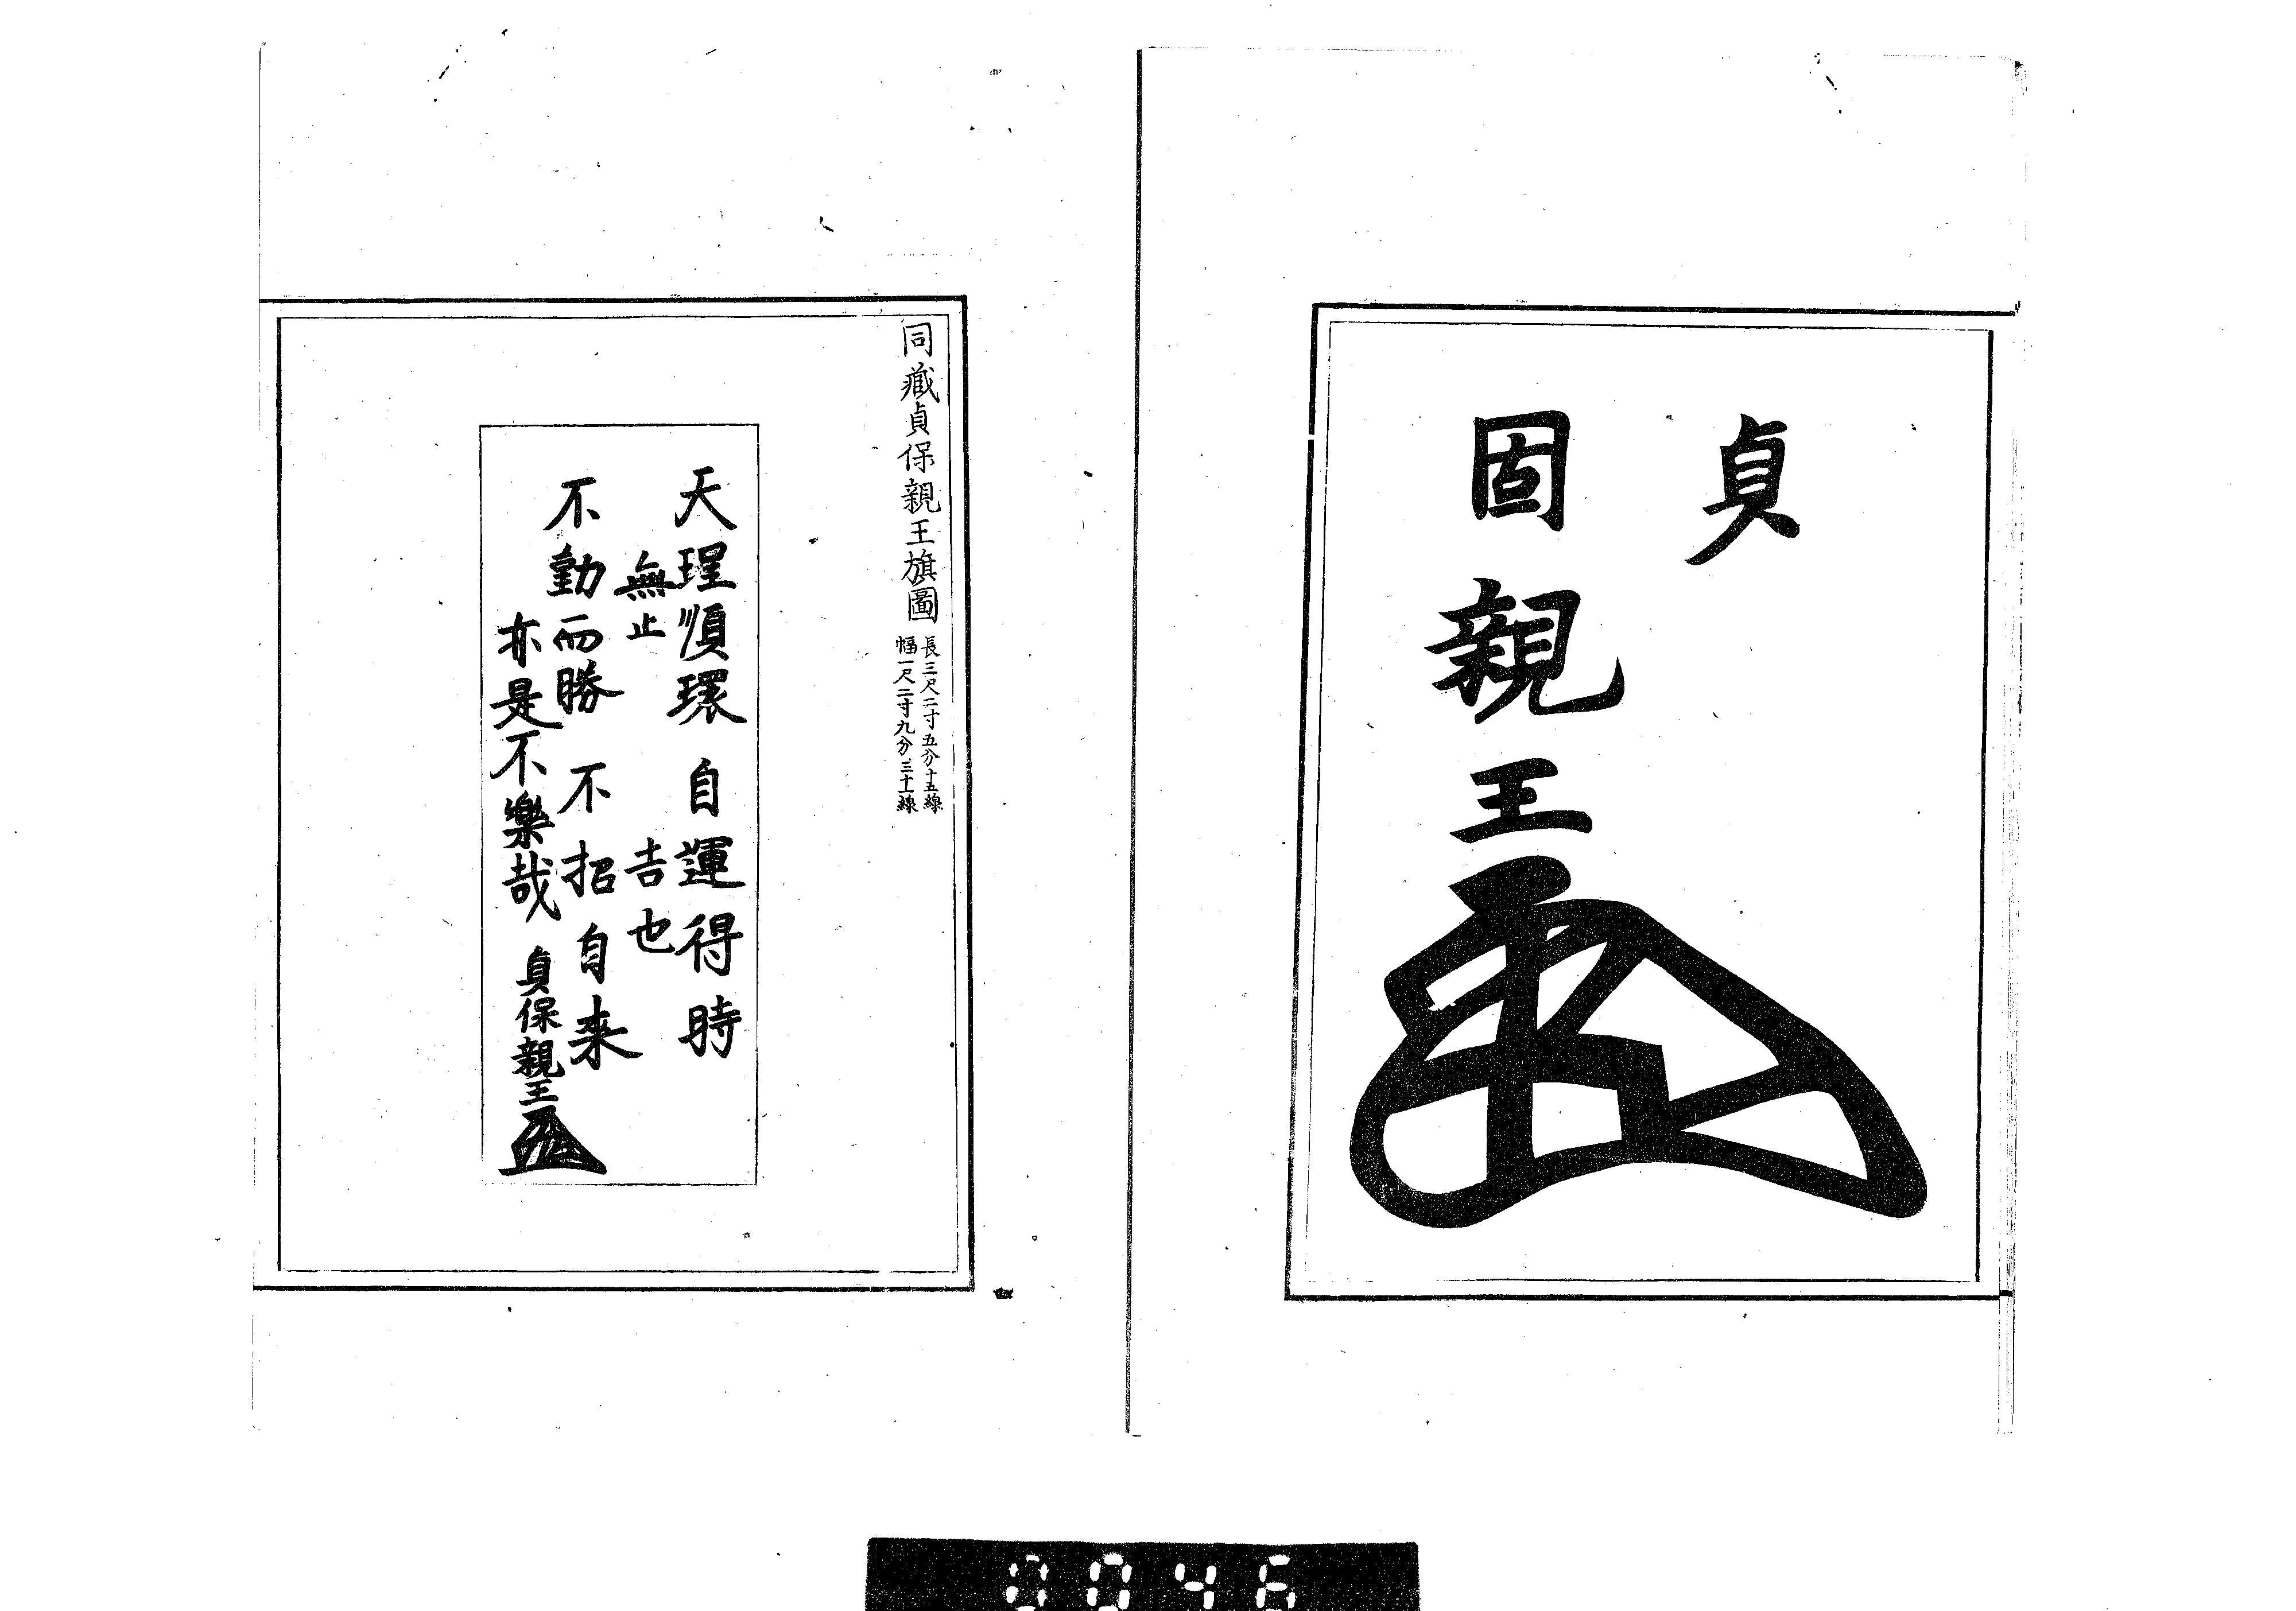 貞
固親王
同藏貞保親王旗圖
長三尺二寸五分十五線
幅一尺二寸九分三十一線
天理順環自運得時
無止吉也
不勤而勝不招自来
亦是不樂哉貞保親王
0046